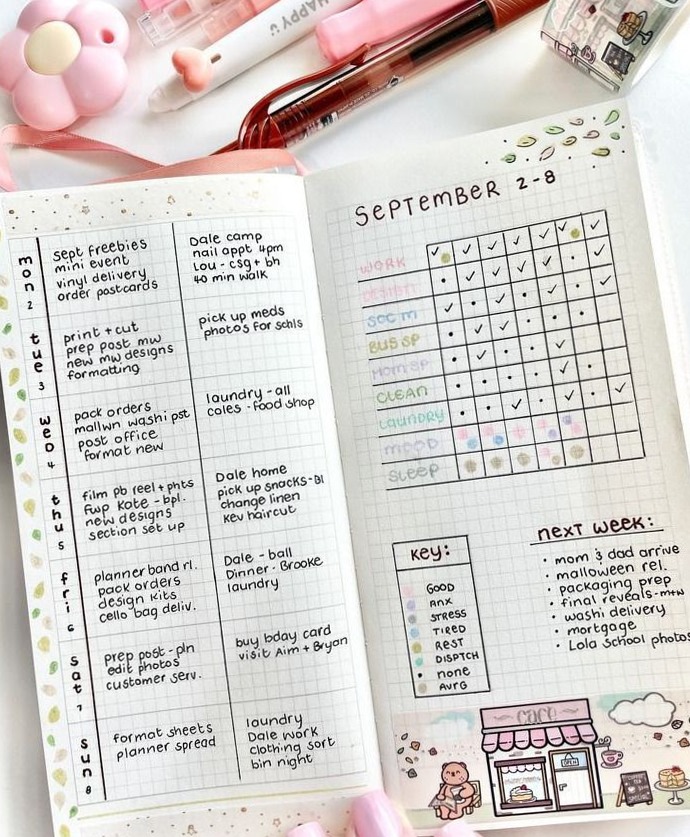 HAPPY
mon
2
sept freebies
mini event
vinyl delivery
order postcards
Dale camp
nail appt 4pm
Lou - csg + bh
40 min walk
tue
3
print + cut
prep post mw
new mw designs
formatting
pick up meds
photos for schls
wed
4
pack orders
mallwn washi pst
post office
format new
laundry - all
coles - food shop
thu
5
film pb reel + phts
fwp Kate - bpl.
new designs
section set up
Dale home
pick up snacks - BI
change linen
Kev haircut
fri
6
planner band rl.
pack orders
design kits
cello bag deliv.
Dale - ball
Dinner - Brooke
laundry
sat
7
prep post - pln
edit photos
customer serv.
buy bday card
visit Aim + Bryan
sun
8
format sheets
planner spread
laundry
Dale work
clothing sort
bin night
SEPTEMBER 2-8
WORK
DESIGN
SOC M
BUS SP
MOM SP
CLEAN
LAUNDRY
MOOD
SLEEP
KEY:
GOOD
ANX
STRESS
TIRED
REST
DISPTCH
• none
AVRG
next week:
• mom & dad arrive
• malloween rel.
• packaging prep
• final reveals - m+w
• washi delivery
• mortgage
• Lola School photos
café
OPEN